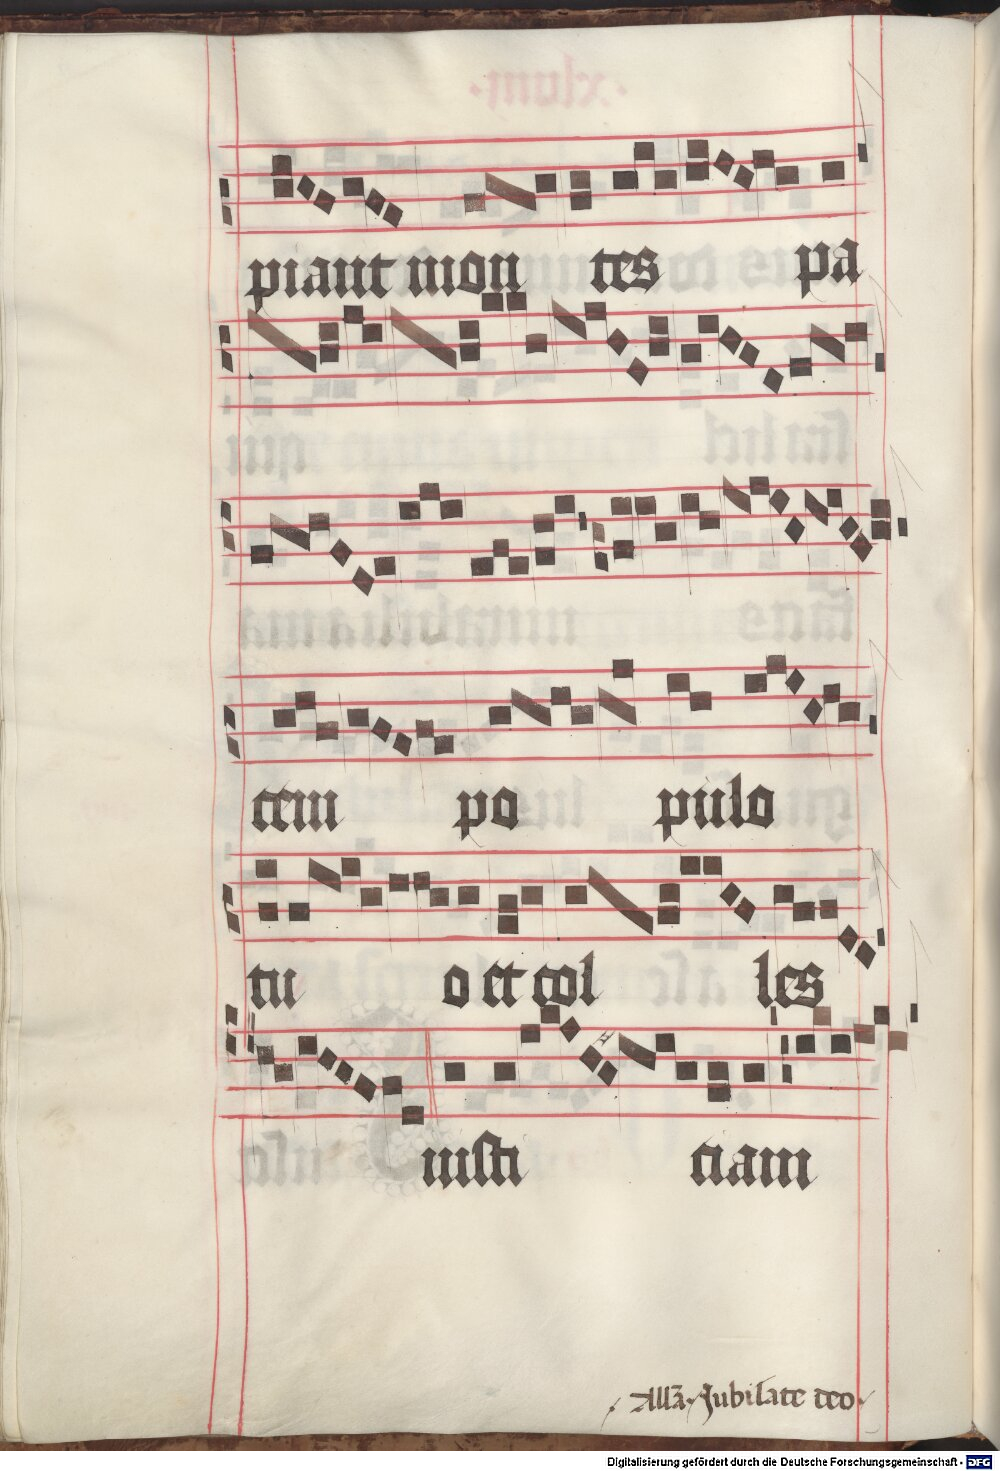 piant mon tes pa
cem po pulo
tu o et col les
iusti ciam
Allā. Jubilate deo.
Digitalisierung gefördert durch die Deutsche Forschungsgemeinschaft - DFG